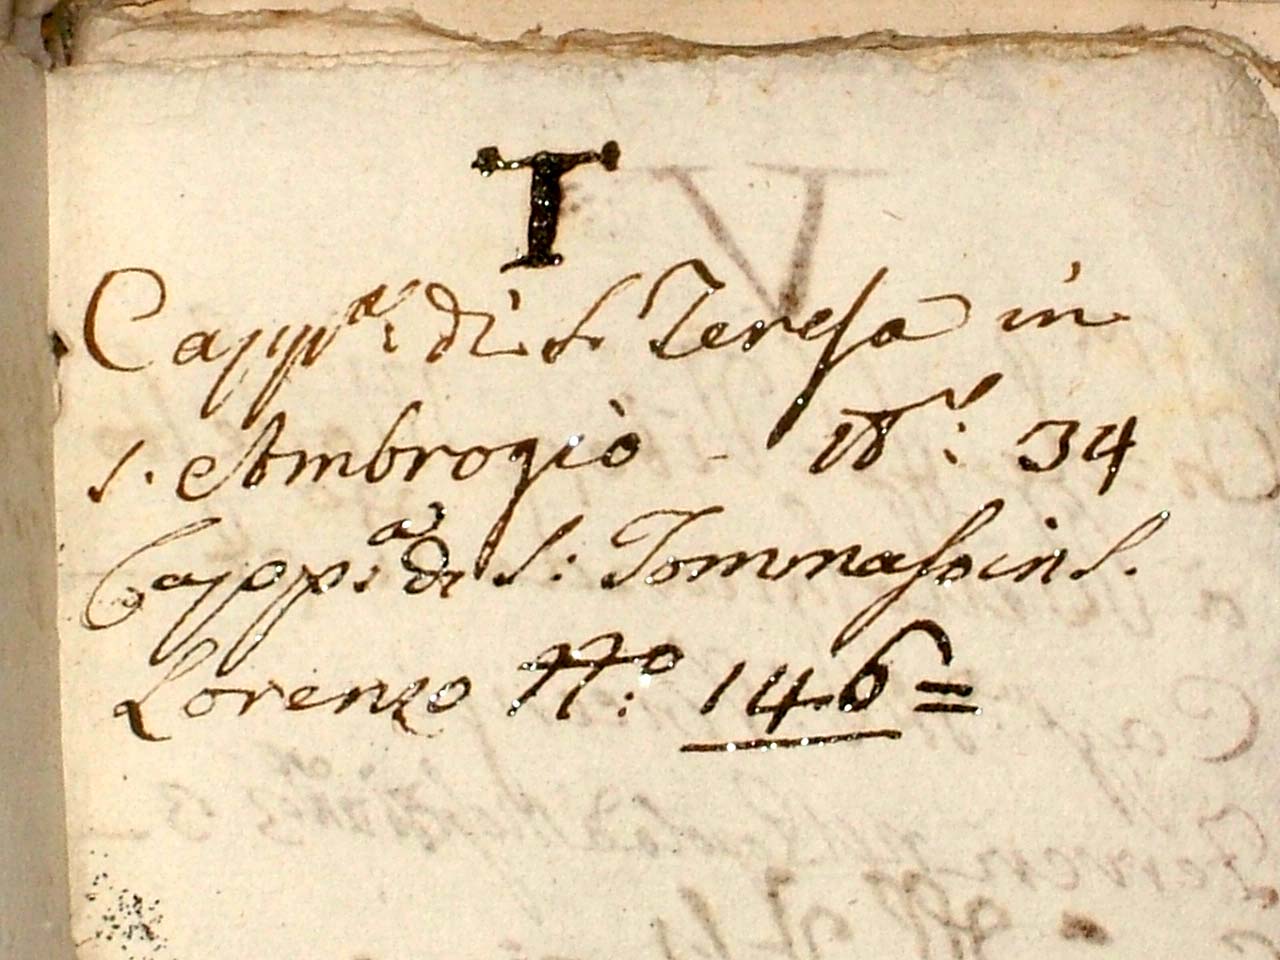 T
Capp.ª di S. Teresa in
S. Ambrogio - N.º: 34
Capp.ª di S: Tommaso in S.
Lorenzo N.º: 146=